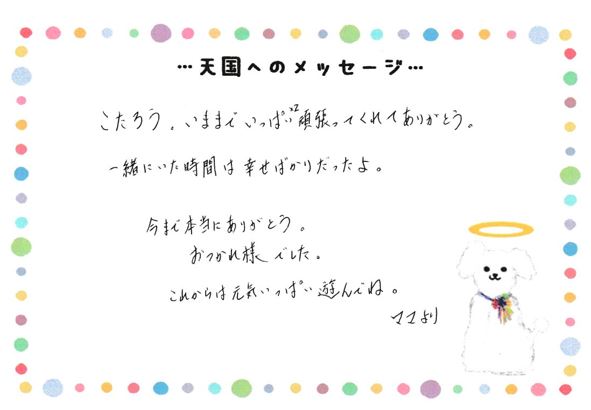 …天国へのメッセージ…
こたろう。いままでいっぱい頑張ってくれてありがとう。
一緒にいた時間は幸せばかりだったよ。
今まで本当にありがとう。
おつかれ様でした。
これからは元気いっぱい遊んでね。
ママより